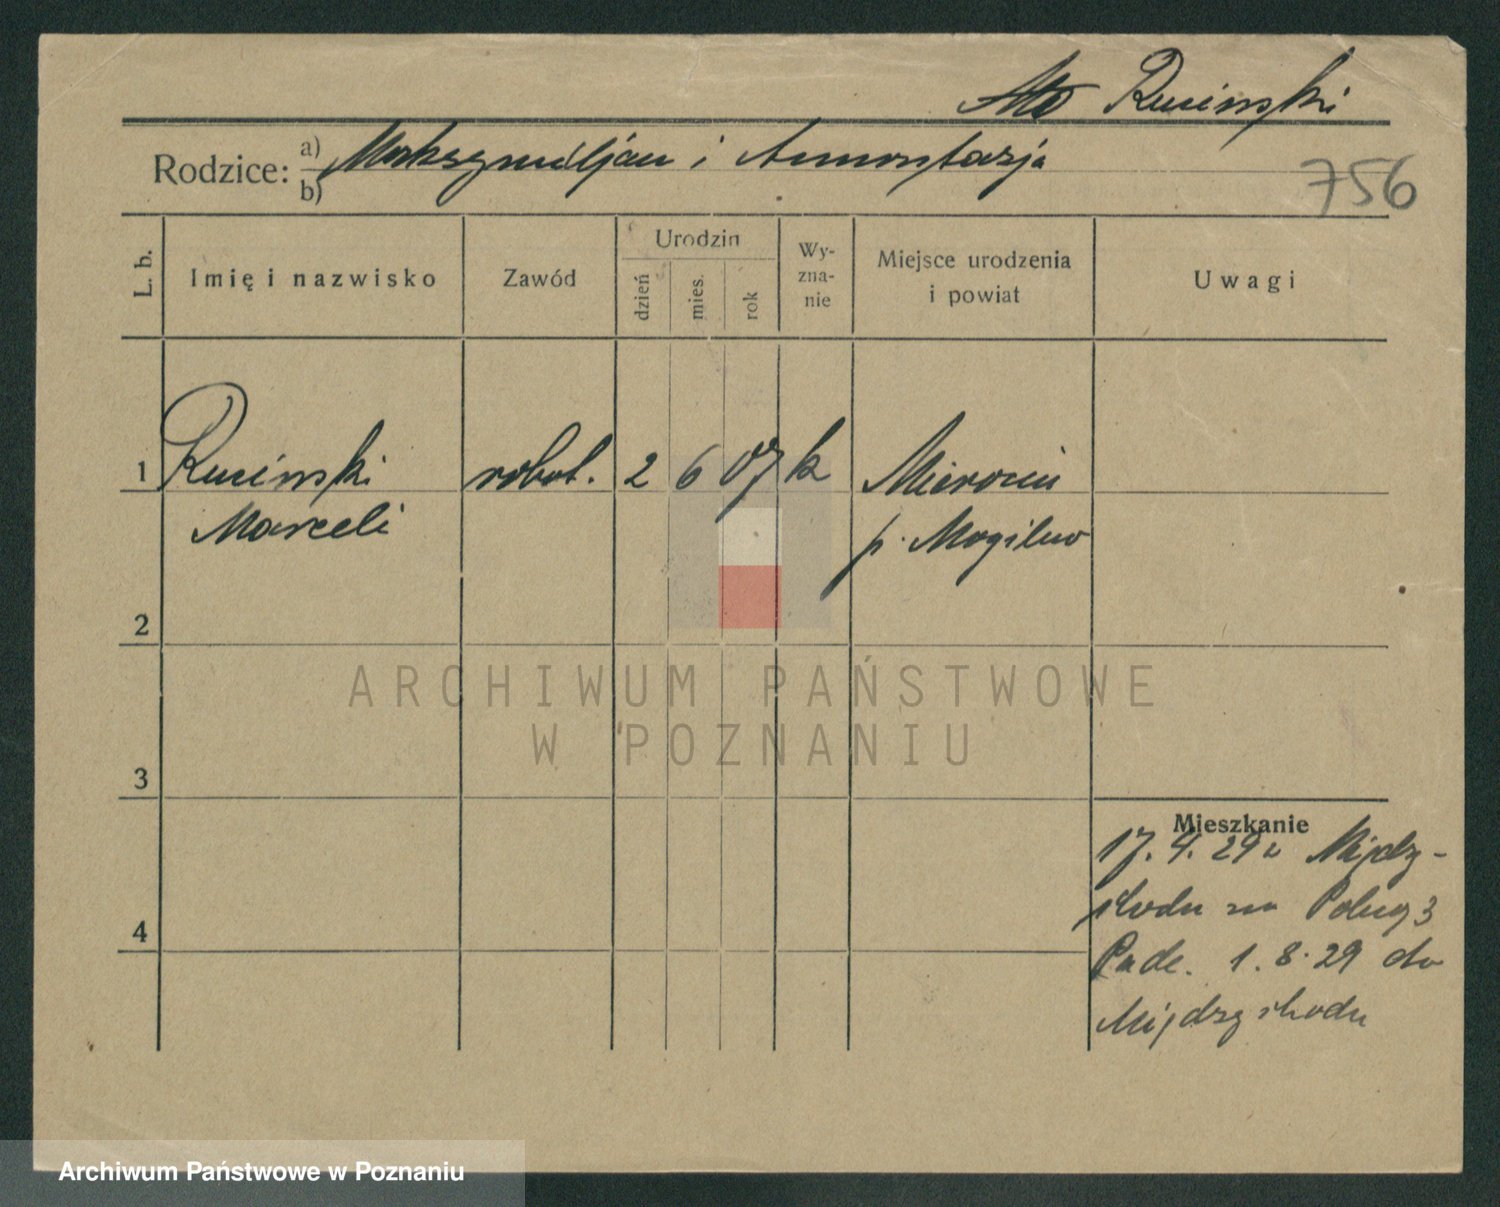 Rucinski
Rodzice: a) Maksymiljan i Anastazja
b)
756
L. b.
Imię i nazwisko
Zawód
Urodzin
dzień
mies.
rok
Wy-
zna-
nie
Miejsce urodzenia
i powiat
Uwagi
1 Rucinski robot. 2 6 07 k Mierocin
Marceli p. Mogilno
2
3
4
Mieszkanie
17. 4. 29 z Między-
chodu na
1. 8. 29 do
Międzychodu
ARCHIWUM PAŃSTWOWE
W POZNANIU
Archiwum Państwowe w Poznaniu